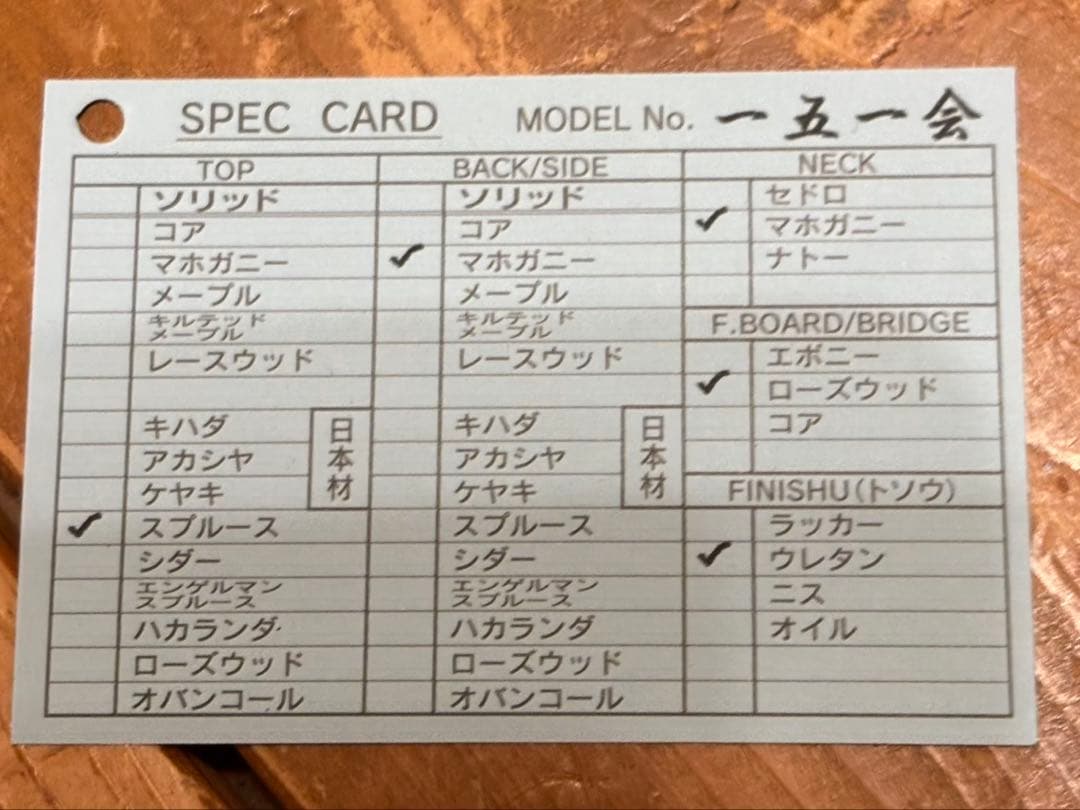 SPEC CARD MODEL No. 一五一会
TOP BACK/SIDE NECK
ソリッド ソリッド セドロ
コア コア ✓ マホガニー
マホガニー ✓ マホガニー ナトー
メープル メープル
キルテッド
メープル
キルテッド
メープル
F.BOARD/BRIDGE
レースウッド レースウッド エボニー
✓ ローズウッド
キハダ キハダ コア
アカシヤ アカシヤ
日本材 日本材
ケヤキ ケヤキ FINISHU(トソウ)
✓ スプルース スプルース ラッカー
シダー シダー ✓ ウレタン
エンゲルマン
スプルース
エンゲルマン
スプルース
ニス
ハカランダ ハカランダ オイル
ローズウッド ローズウッド
オバンコール オバンコール